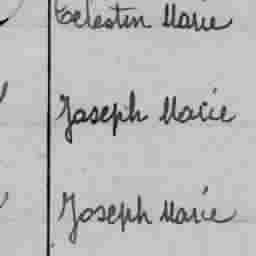 Celestin Marie
Joseph Marie
Joseph Marie